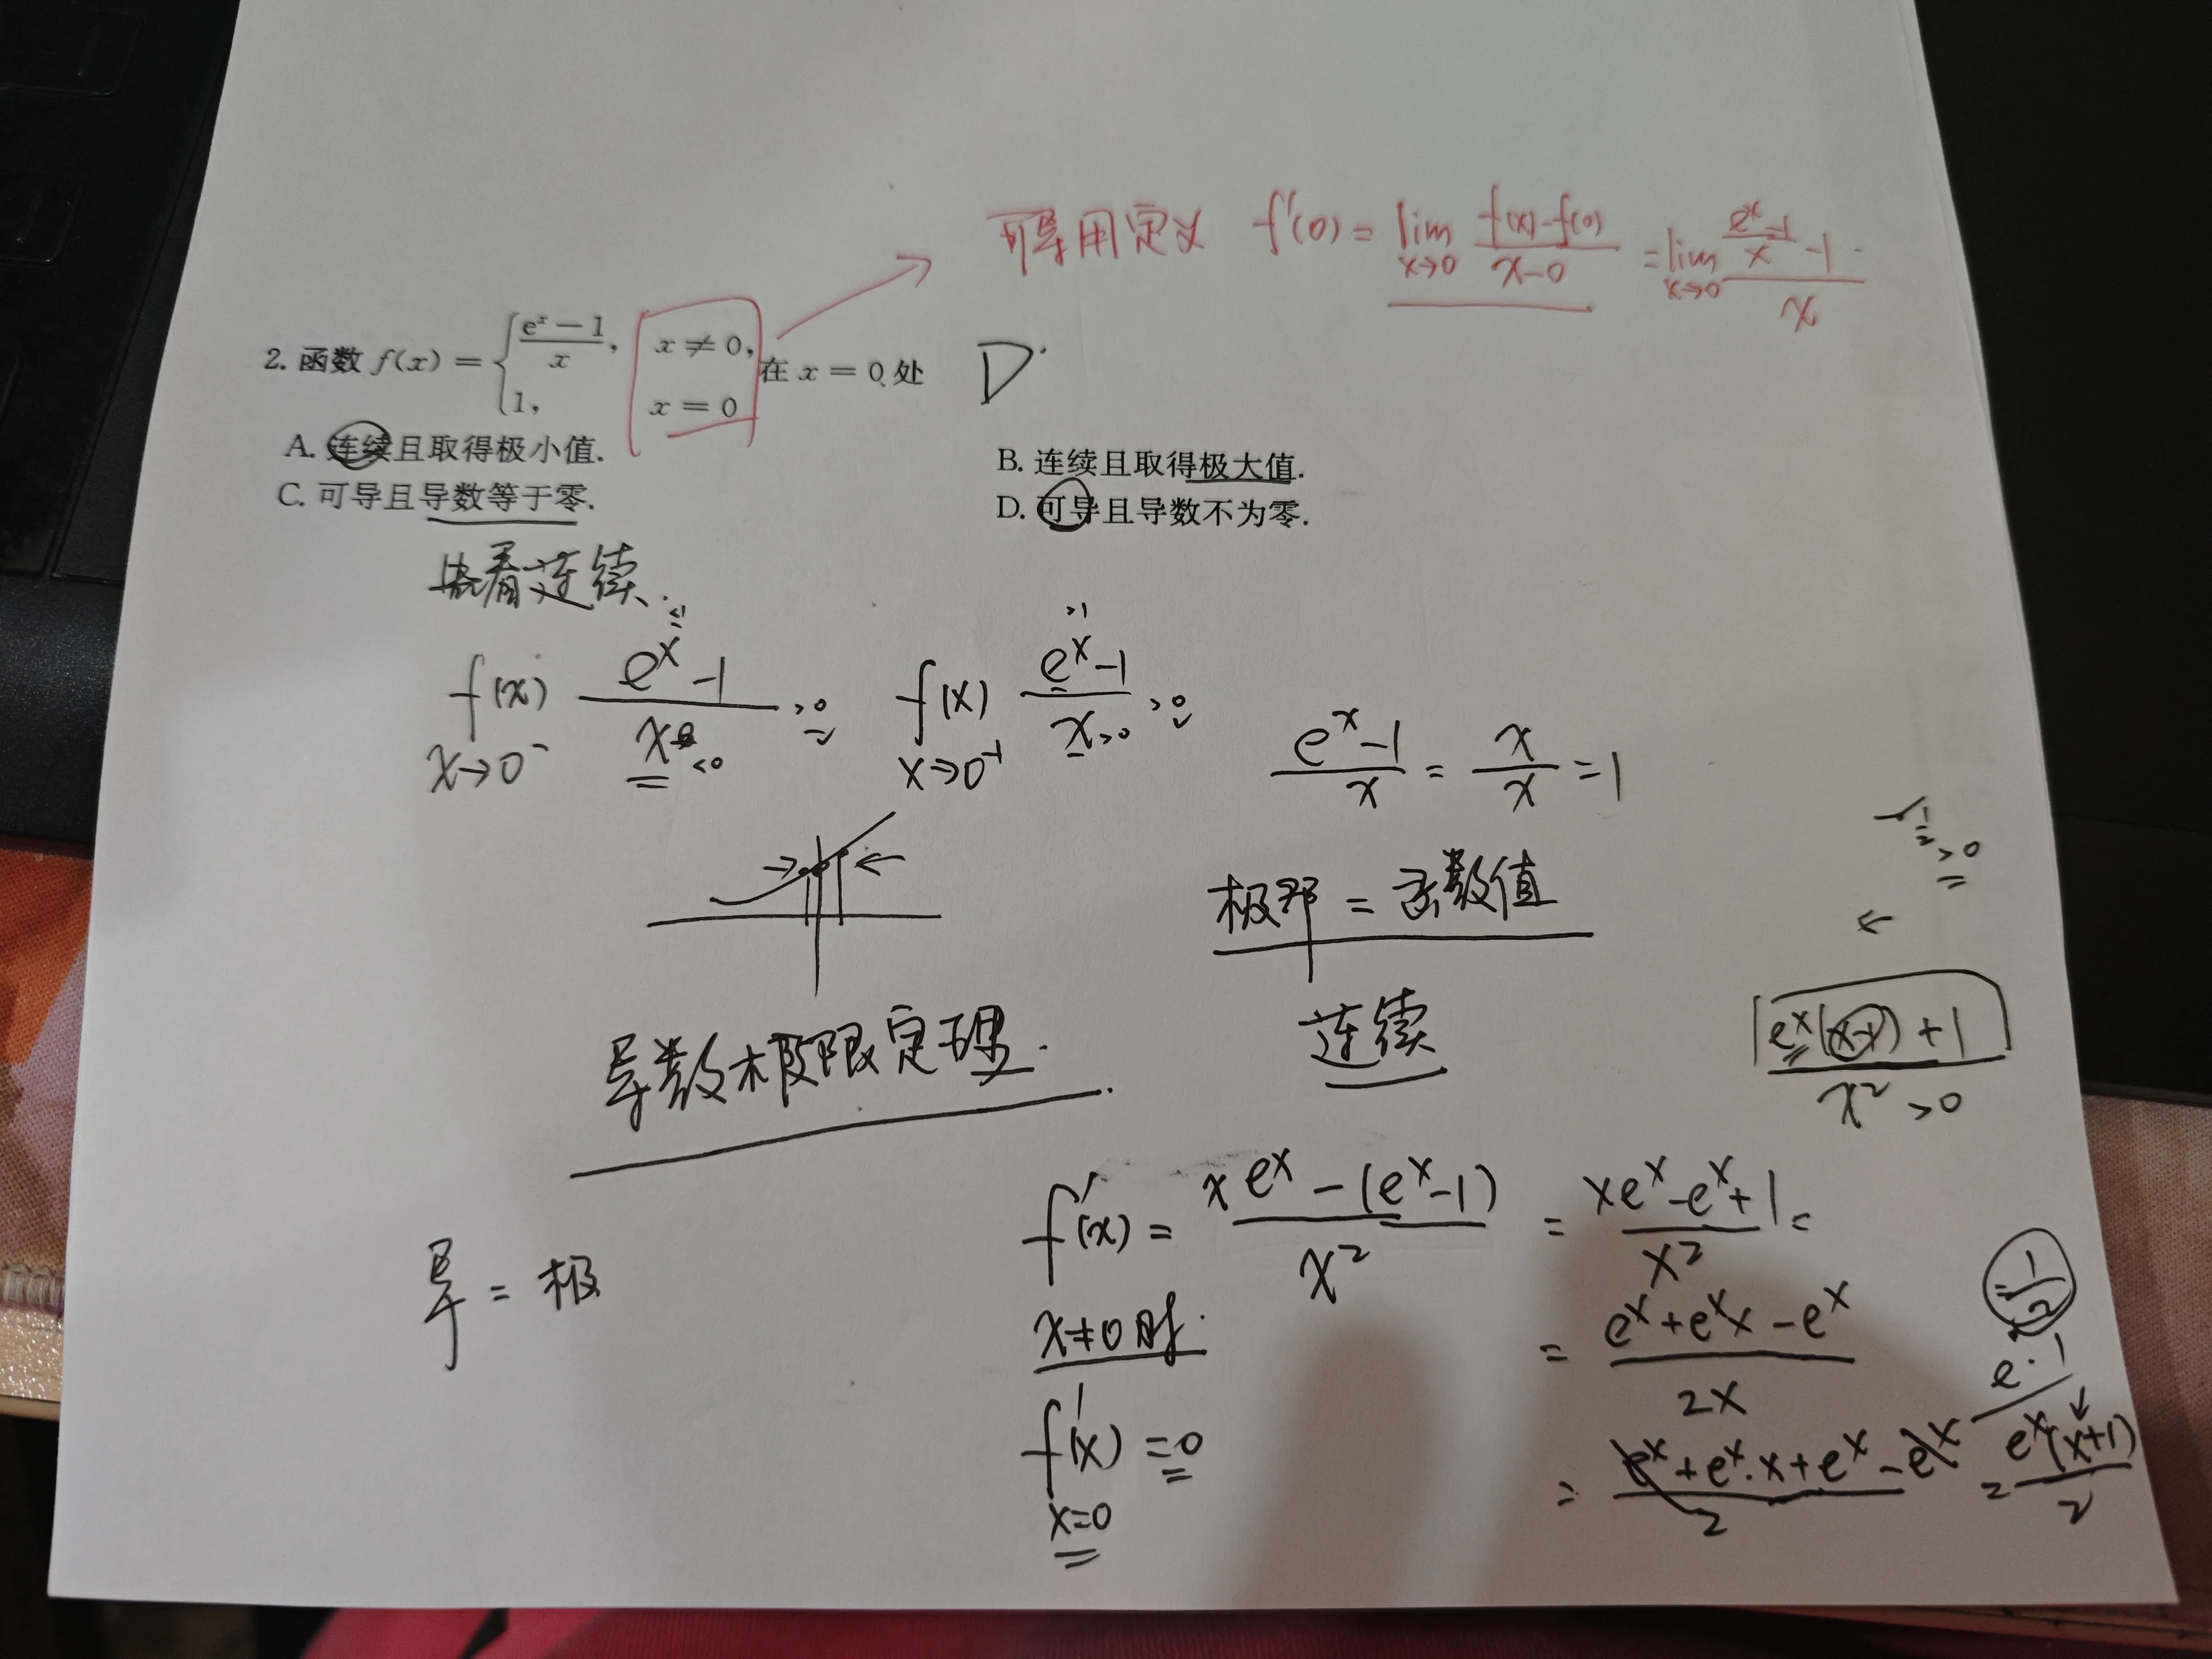 可导用定义 f'(0) = lim x→0 (f(x)-f(0))/(x-0) = lim x→0 ((e^x-1)/x -1)/x
2. 函数 f(x) = { (e^x − 1)/x, x ≠ 0, 1, x = 0 在 x = 0 处 D.
A. 连续且取得极小值.
B. 连续且取得极大值.
C. 可导且导数等于零.
D. 可导且导数不为零.
看连续.
f(x) x→0^- (e^x -1)/x <1 <0 >0
f(x) x→0^-1 (e^x -1)/x >1 >0 >0
(e^x -1)/x = x/x = 1
1/2 >0
极限 = 函数值
连续
(e^x(x-1)+1)/x^2 >0
导数极限定理.
f'(x) = (xe^x - (e^x-1))/x^2 = (xe^x - e^x + 1)/x^2 =
x≠0 时.
= (e^x + e^x x - e^x)/2x
= 1/2
导 = 极
e·1
f'(x) = 0
x=0
= (e^x + e^x·x + e^x - e^x)/2 = e^x(x+1)/2